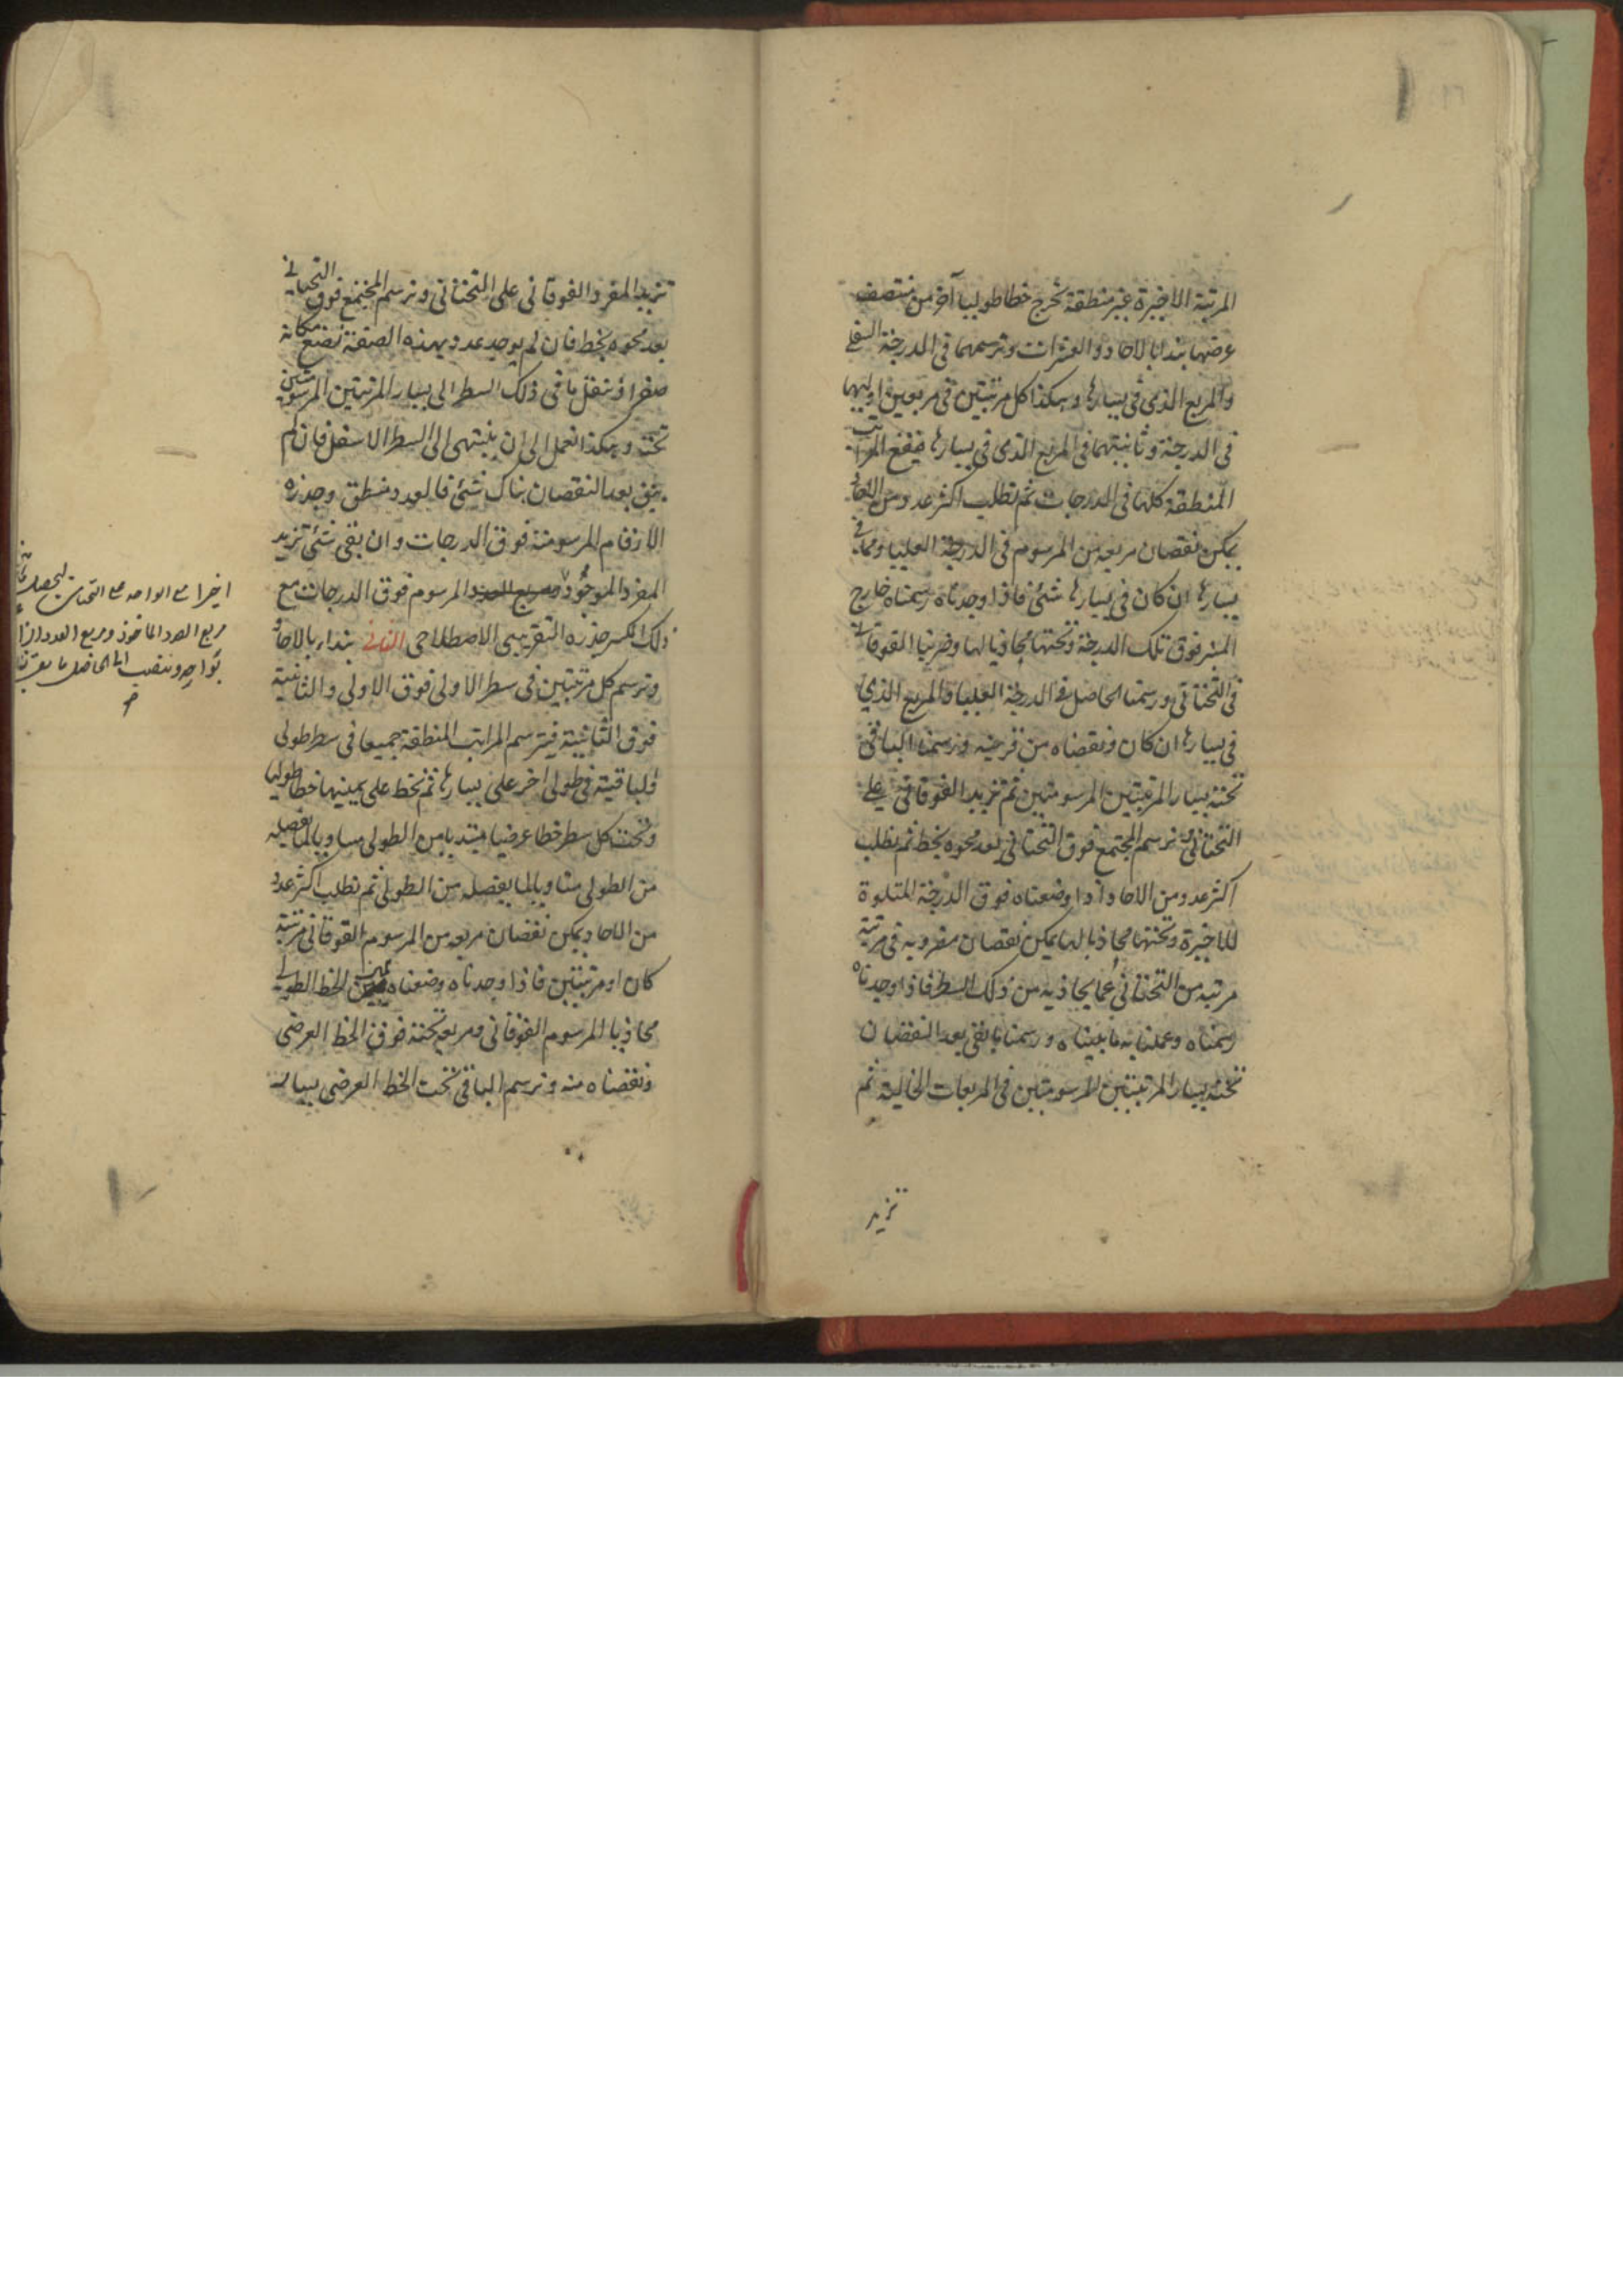 المرتبة الاخيرة غير منطقة نخرج خطا طوليا آخر من منتصف
عرضها بتدا بالاحاد والعشرات ونرسمهما فى الدرجة السفلى
والمربع الذى فى يسارها وهكذا كل مرتبتين فى مربعين اوليهما
فى الدرجة وثانيتهما فى المربع الذى فى يسارها فيقع المراتب
المنطقة كلها فى الدرجات ثم نطلب اكثر عدد من الآحاد
يمكن نقصان مربعه من المرسوم فى الدرجة العليا ومما فى
يسارها ان كان فى يسارها شئ فاذا وجدناه رسمناه خارج
فوق تلك الدرجة وتحتها محاذيا لها وضربنا الفوقانى
فى التحتانى ورسمنا الحاصل فى الدرجة العليا والمربع الذي
فى يسارها ان كان ونقصناه من قرينه ورسمنا الباقى
تحته بيسار المرتبتين المرسومتين ثم نزيد الفوقانى على
التحتانى ونرسم المجتمع فوق التحتانى بعد محوه بخط ثم نطلب
اكثر عدد من الاحاد اذا وضعناه فوق الدرجة المتلوة
للاخيرة وتحتها محاذيا لها يمكن نقصان مضروبه فى مرتبة
مرتبه من التحتانى عما يحاذيه من ذلك السطر فاذا وجدناه
رسمناه وعملنا به ما بيناه ورسمنا ما بقى بعد النقصان
تحته بيسار المرتبتين المرسومتين فى المربعات الخالية ثم
نزيد
نزيد المفرد الفوقانى على التحتانى ونرسم المجتمع فوق التحتانى
بعد محوه بخط فان لم يوجد عدد بهذه الصفة نضع مكانه
صفرا وننقل ما فى ذلك السطر الى يسار المرتبتين المرسومتين
تحته وهكذا نعمل الى ان ينتهى الى السطر الاسفل فان لم
يبق بعد النقصان هناك شئ فالعدد منطق وجذره
الارقام المرسومة فوق الدرجات وان بقى شئ نزيد
المفرد الموجود المرسوم فوق الدرجات مع
ذلك الكسر جذره التقريبى الاصطلاحى الثانى بتداء بالاحاد
ونرسم كل مرتبتين فى سطر الاولى فوق الاولى والثانية
فوق الثانية فيترسم المراتب المنطقة جميعا فى سطر طولى
والباقية فى طولى اخر على يسارها ثم نخط على يمينها خطا طوليا
وتحت كل سطر خطا عرضيا مبتديا من الطولى مساويا لما يفصله
من الطولى مساويا لما يفصله من الطولى ثم نطلب اكثر عدد
من الاحاد يمكن نقصان مربعه من المرسوم الفوقانى مرتبة
كان او مرتبتين فاذا وجدناه وضعناه يمين الخط الطولى
محاذيا المرسوم الفوقانى ومربعه تحته فوق الخط العرضى
ونقصناه منه ونرسم الباقى تحت الخط العرضى بيسار
اخيرا مع الواحد على التحتانى ليحصل
مربع العدد الماخوذ ومربع العدد الزائد
بواحد وننصب الى الحاصل ما بقى